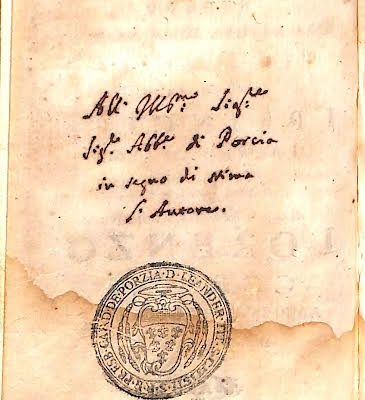 All' Ill.mo Sig.re
Sig.r Abb.e di Porcia
in segno di stima
l'Autore.
D·LEANDER·TIT· PRESB·CARD·DE PORZIA